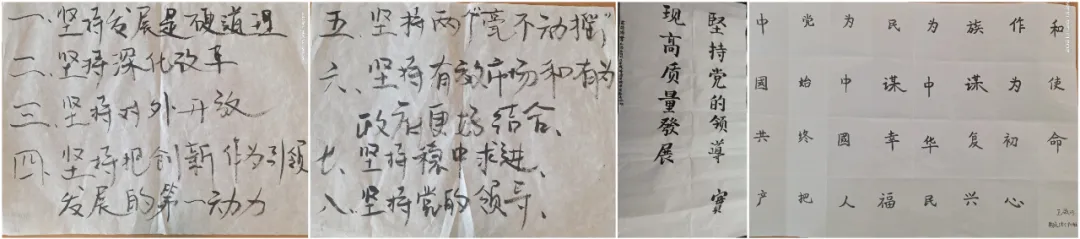 一、坚持发展是硬道理
二、坚持深化改革
三、坚持对外开放
四、坚持把创新作为引领
发展的第一动力
五、坚持两个"毫不动摇"
六、坚持有效市场和有为
政府更好结合、
七、坚持稳中求进、
八、坚持党的领导、
堅持党的领導 實
现高质量發展
中党为民为族作和
国始中谋中谋为使
共终國幸华复初命
产把人福民兴心